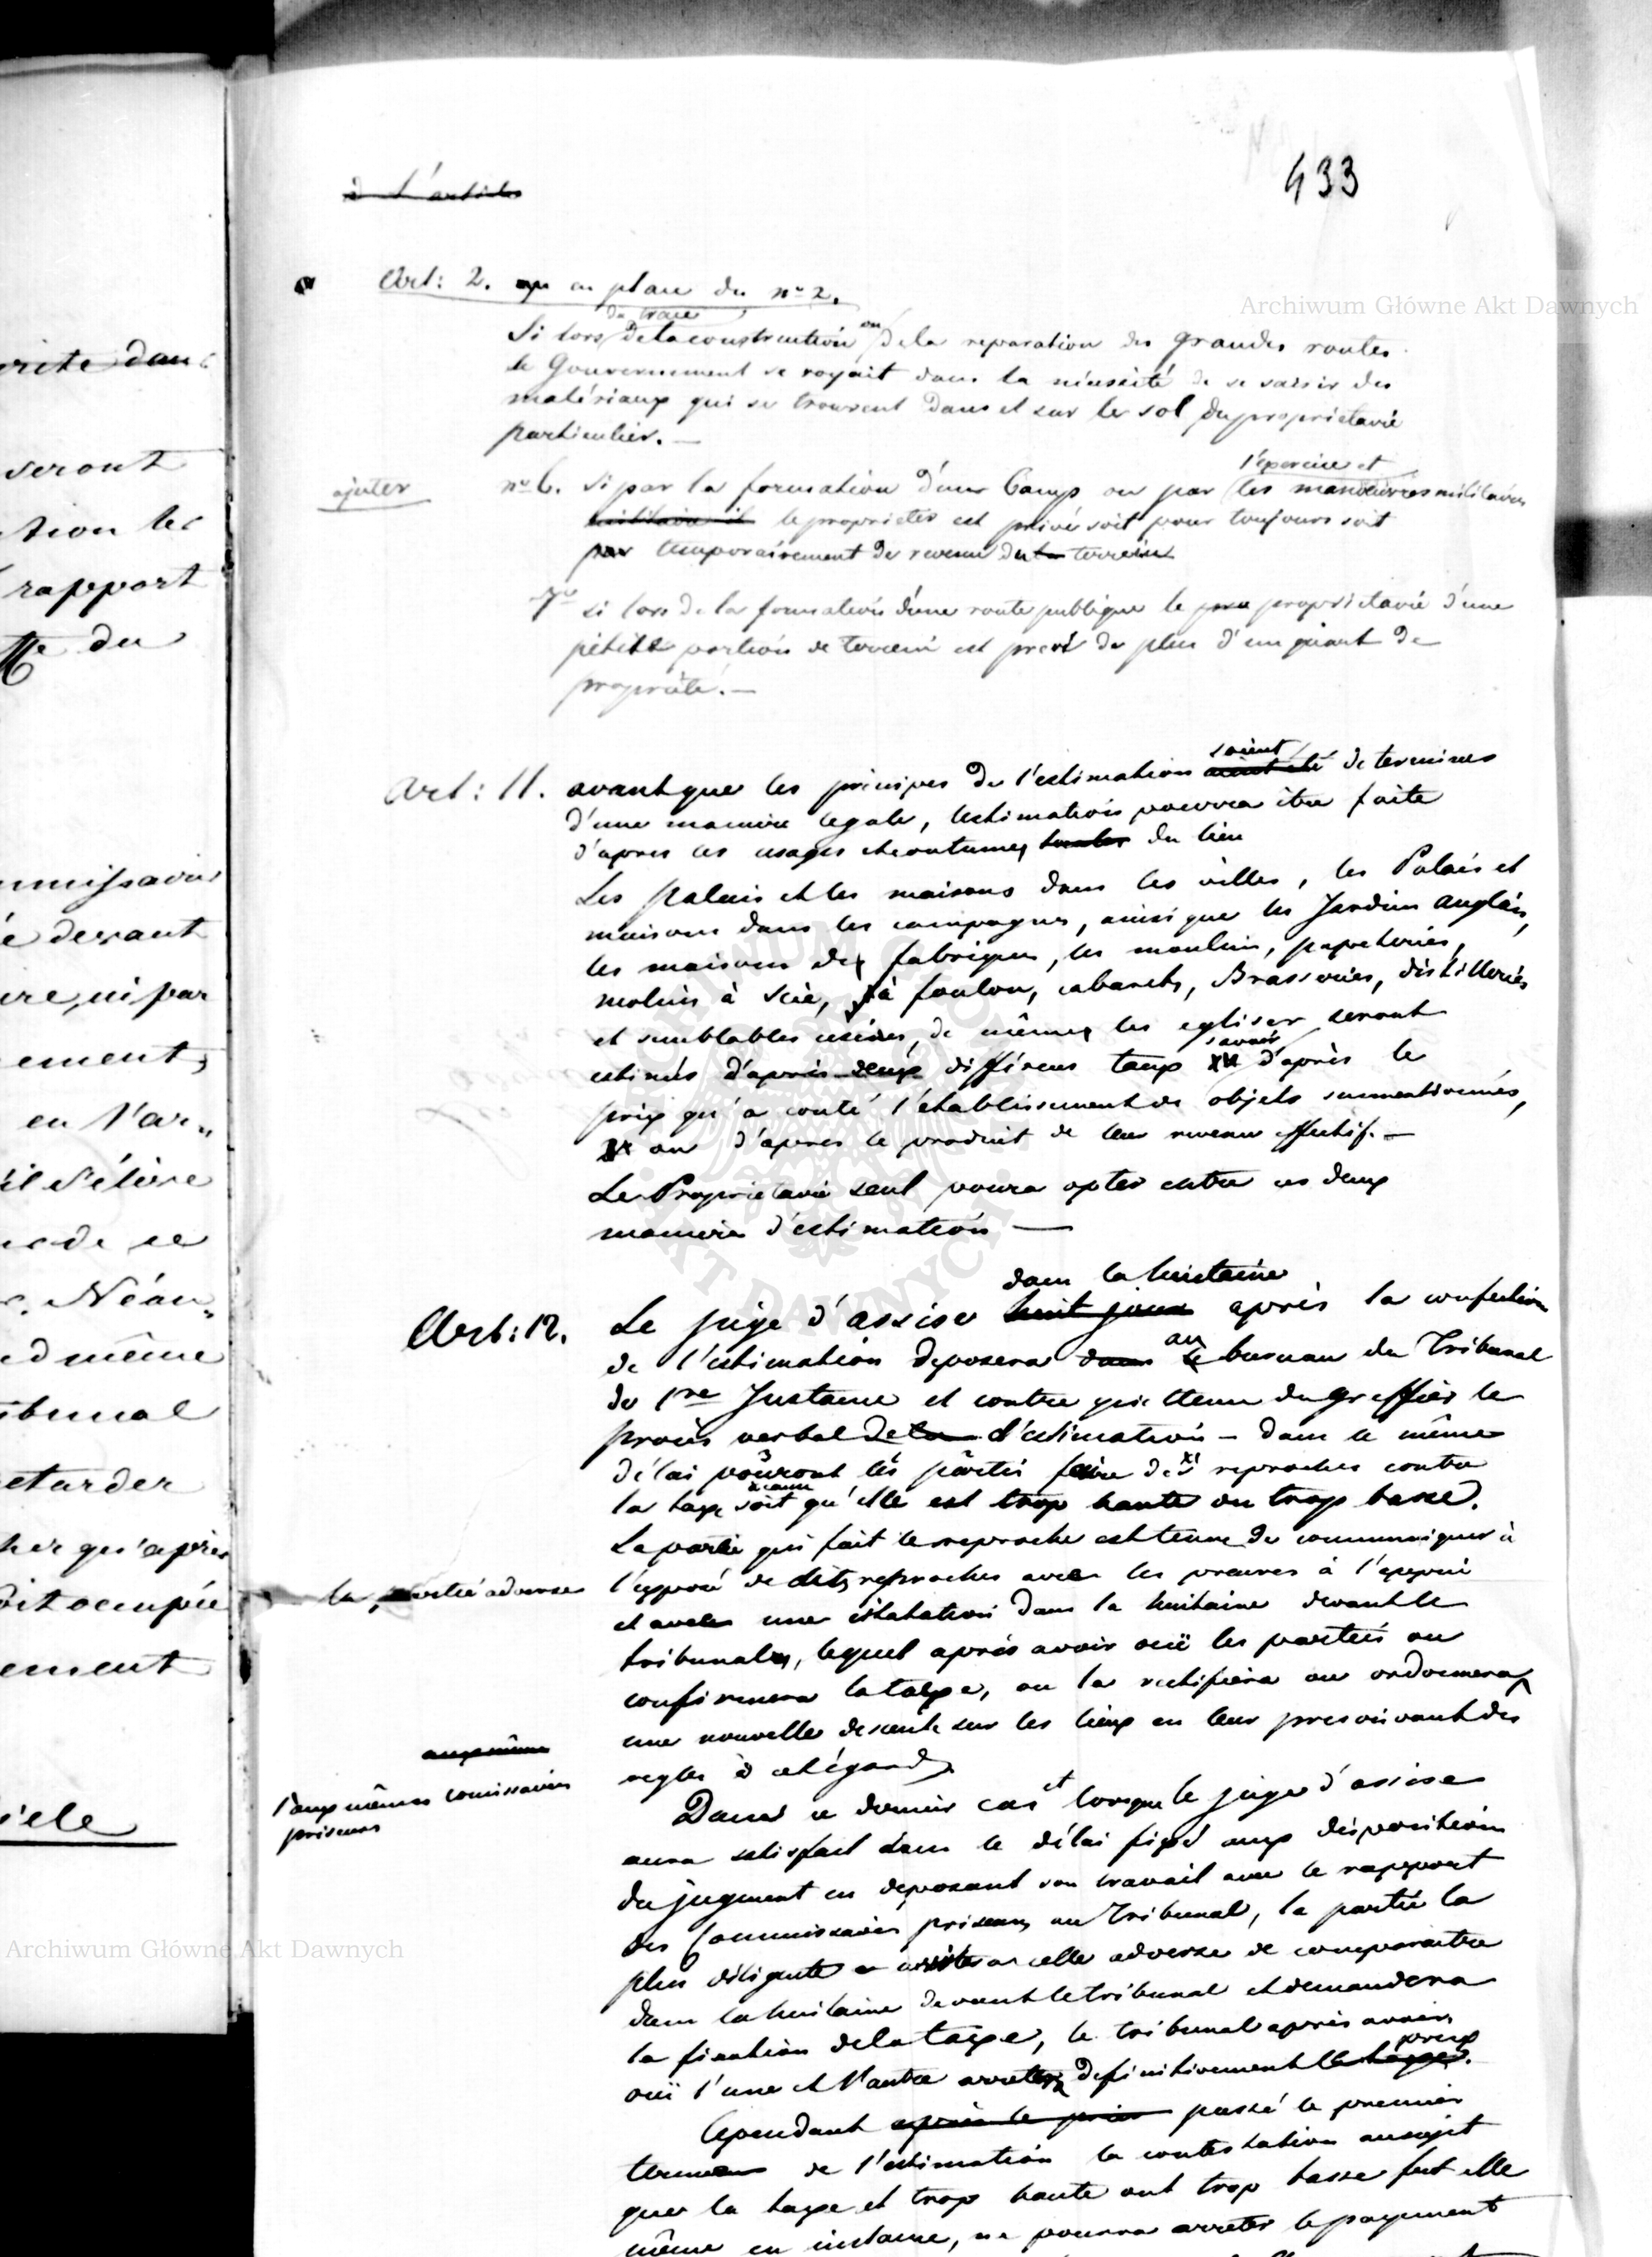 433
à l'article
Art: 2. en place du nº 2.
du tracé
Si lors de la construction ou de la reparation des grandes routes
le Gouvernement se voyait dans la nécessité de se saisir des
matériaux qui se trouvent dans et sur le sol du proprietaire
particulier. —
ajouter
l'exercice et
nº 6. Si par la formation d'une Camp ou par les manœuvres militaires
le proprieter est privé soit pour toujours soit
par temporairement de revenu du terrein
7º si lors de la formation d'une route publique le proprietaire d'une
petite portion de terrein est privé de plus d'un quart de
propriété. —
soient
Art: 11. avant que les principes de l'estimation aient été determines
d'une maniere legale, l'estimation pourra être faite
d'apres les usages et coutumes locales du lieu
Les palais et les maisons dans les villes, les Palais et
maisons dans les campagnes, ainsi que les Jardins anglais,
les maisons des fabriques, les moulins, papeteries,
molins à scie, à foulon, cabarets, Brasseries, distilleries
et semblables usines, de même les eglises seront
savoir
estimés d'après deux différens taux d'après le
prix qu'a couté l'établissement des objets susmentionnés,
ou d'apres le produit de leur revenu effectif. —
Le Proprietaire seul poura opter entre ces deux
maniere d'estimation —
dans la huitaine
Art: 12. Le juge d'assise huit jours après la confection
de l'estimation deposera dans au le bureau du Tribunal
de 1re Instance et contre quittence du Greffier le
procès verbal de la d'estimation – dans le même
délai pouront les parties faire des reproches contre
la taxe soit qu'elle est trop haute ou trop basse.
La partie qui fait le reproche est tenue de communiquer à
la partie adverse
l'opposé de dits reproches avec les preuves à l'appui
et avec une citatation dans la huitaine devant le
tribunal, lequel après avoir ouï les parties ou
confirmera la taxe, ou la rectifiera ou ordonnera
une nouvelle descente sur les lieux en leur prescrivant des
regles à cet égard
aux même
l'aux mêmes comissaires
priseurs
Dans ce dernier cas et lorsque le juge d'assise
aura satisfait dans le délai fixé aux dispositions
du jugement en deposant son travail avec le rapport
des Commissaires priseurs au Tribunal, la partie la
plus diligente celle adverse de comparaitre
dans la huitaine devant le tribunal et demandera
la fixation de la taxe, le tribunal après avoir
ouï l'une et l'autre arretera definitivement le prix
Cependant après le prix passé le premier
de l'estimation la contestation au sujet
que la taxe et trop haute out trop basse fut elle
même en instance, ne pourra arreter le payement
rite dans
seront
tion les
rapport
du
mmissaires
é devant
ure, ni par
ement,
en l'ar„
il s'élève
de se
Néan„
d même
ibunal
etarder
her qu'après
soit occupée
ement
iele
Archiwum Główne Akt Dawnych
Archiwum Główne Akt Dawnych